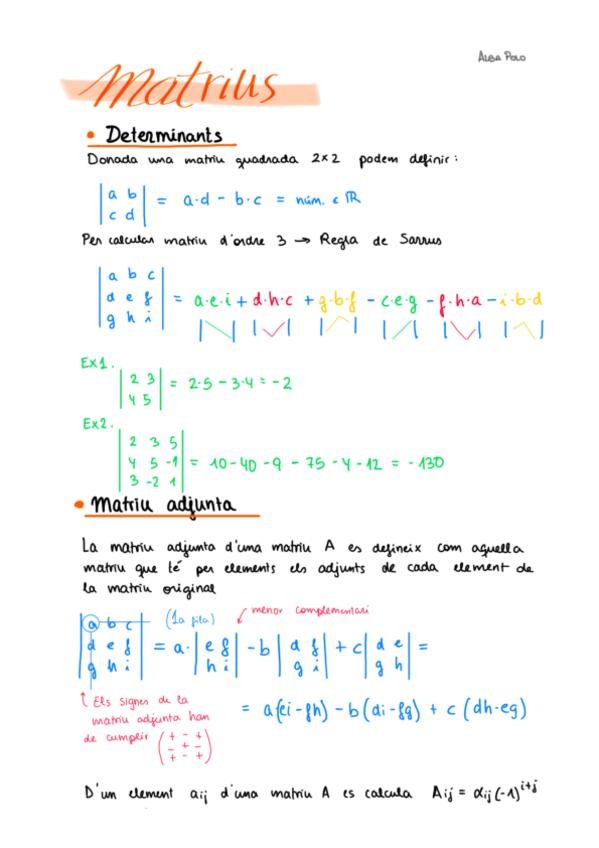 ALBA POLO
Matrius
• Determinants
Donada una matriu quadrada 2x2 podem definir:
|a b|
|c d| = a·d - b·c = núm. ∈ ℝ
Per calcular matriu d'ordre 3 → Regla de Sarrus
|a b c|
|d e f| = a·e·i + d·h·c + g·b·f - c·e·g - f·h·a - i·b·d
|g h i|
Ex1.
|2 3|
|4 5| = 2·5 - 3·4 = -2
Ex2.
|2 3 5|
|4 5 -1| = 10 - 40 - 9 - 75 - 4 - 12 = -130
|3 -2 1|
• Matriu adjunta
La matriu adjunta d'una matriu A es defineix com aquella
matriu que té per elements els adjunts de cada element de
la matriu original
menor complementari
|a b c| (1a fila)
|d e f| = a·|e f| - b|d f| + c|d e| =
|g h i| |h i| |g i| |g h|
Els signes de la
matriu adjunta han
de complir (+ - +)
(- + -)
(+ - +)
= a(ei - fh) - b(di - fg) + c(dh - eg)
D'un element aij d'una matriu A es calcula Aij = αij (-1)^i+j